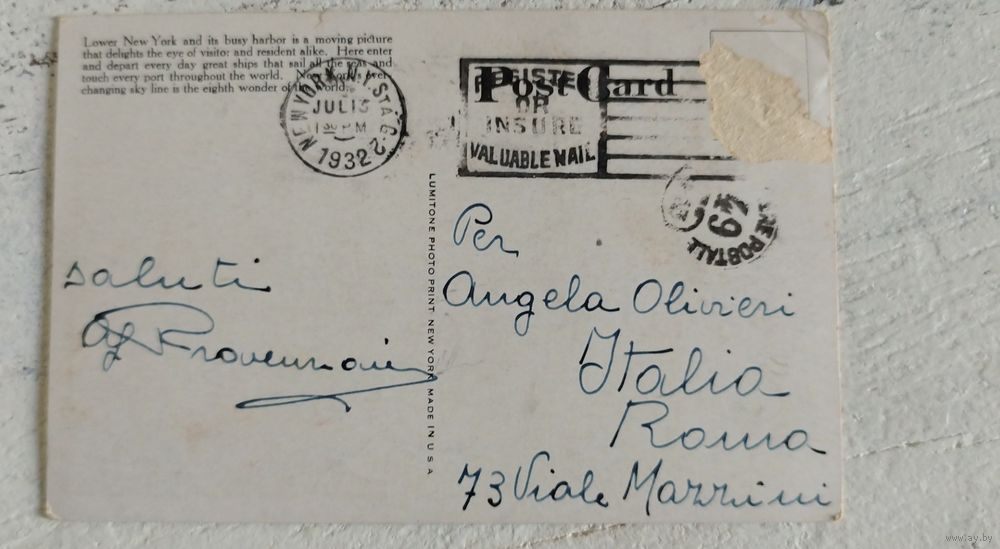 Lower New York and its busy harbor is a moving picture
that delights the eye of visitor and resident alike. Here enter
and depart every day great ships that sail all the seas and
touch every port throughout the world. New York's ever
changing sky line is the eighth wonder of the world.
NEW YORK, N.Y. STA. G.
JUL 13
1 30 PM
1932
2
Post Card
REGISTER
OR
INSURE
VALUABLE MAIL
69
POSTALI
LUMITONE PHOTO PRINT NEW YORK MADE IN U.S.A.
saluti
Per
Angela Olivieri
Italia
Roma
73 Viale Mazzini
www.ay.by